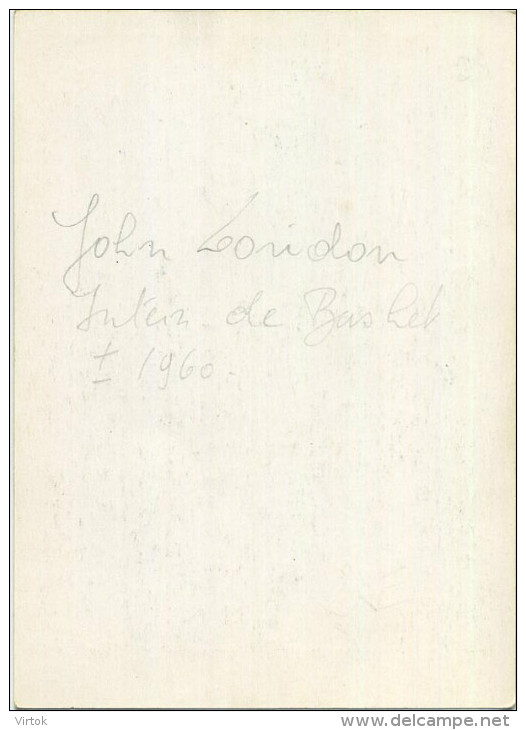 John London
de Basket
± 1960 -
Virtok
www.delcampe.net